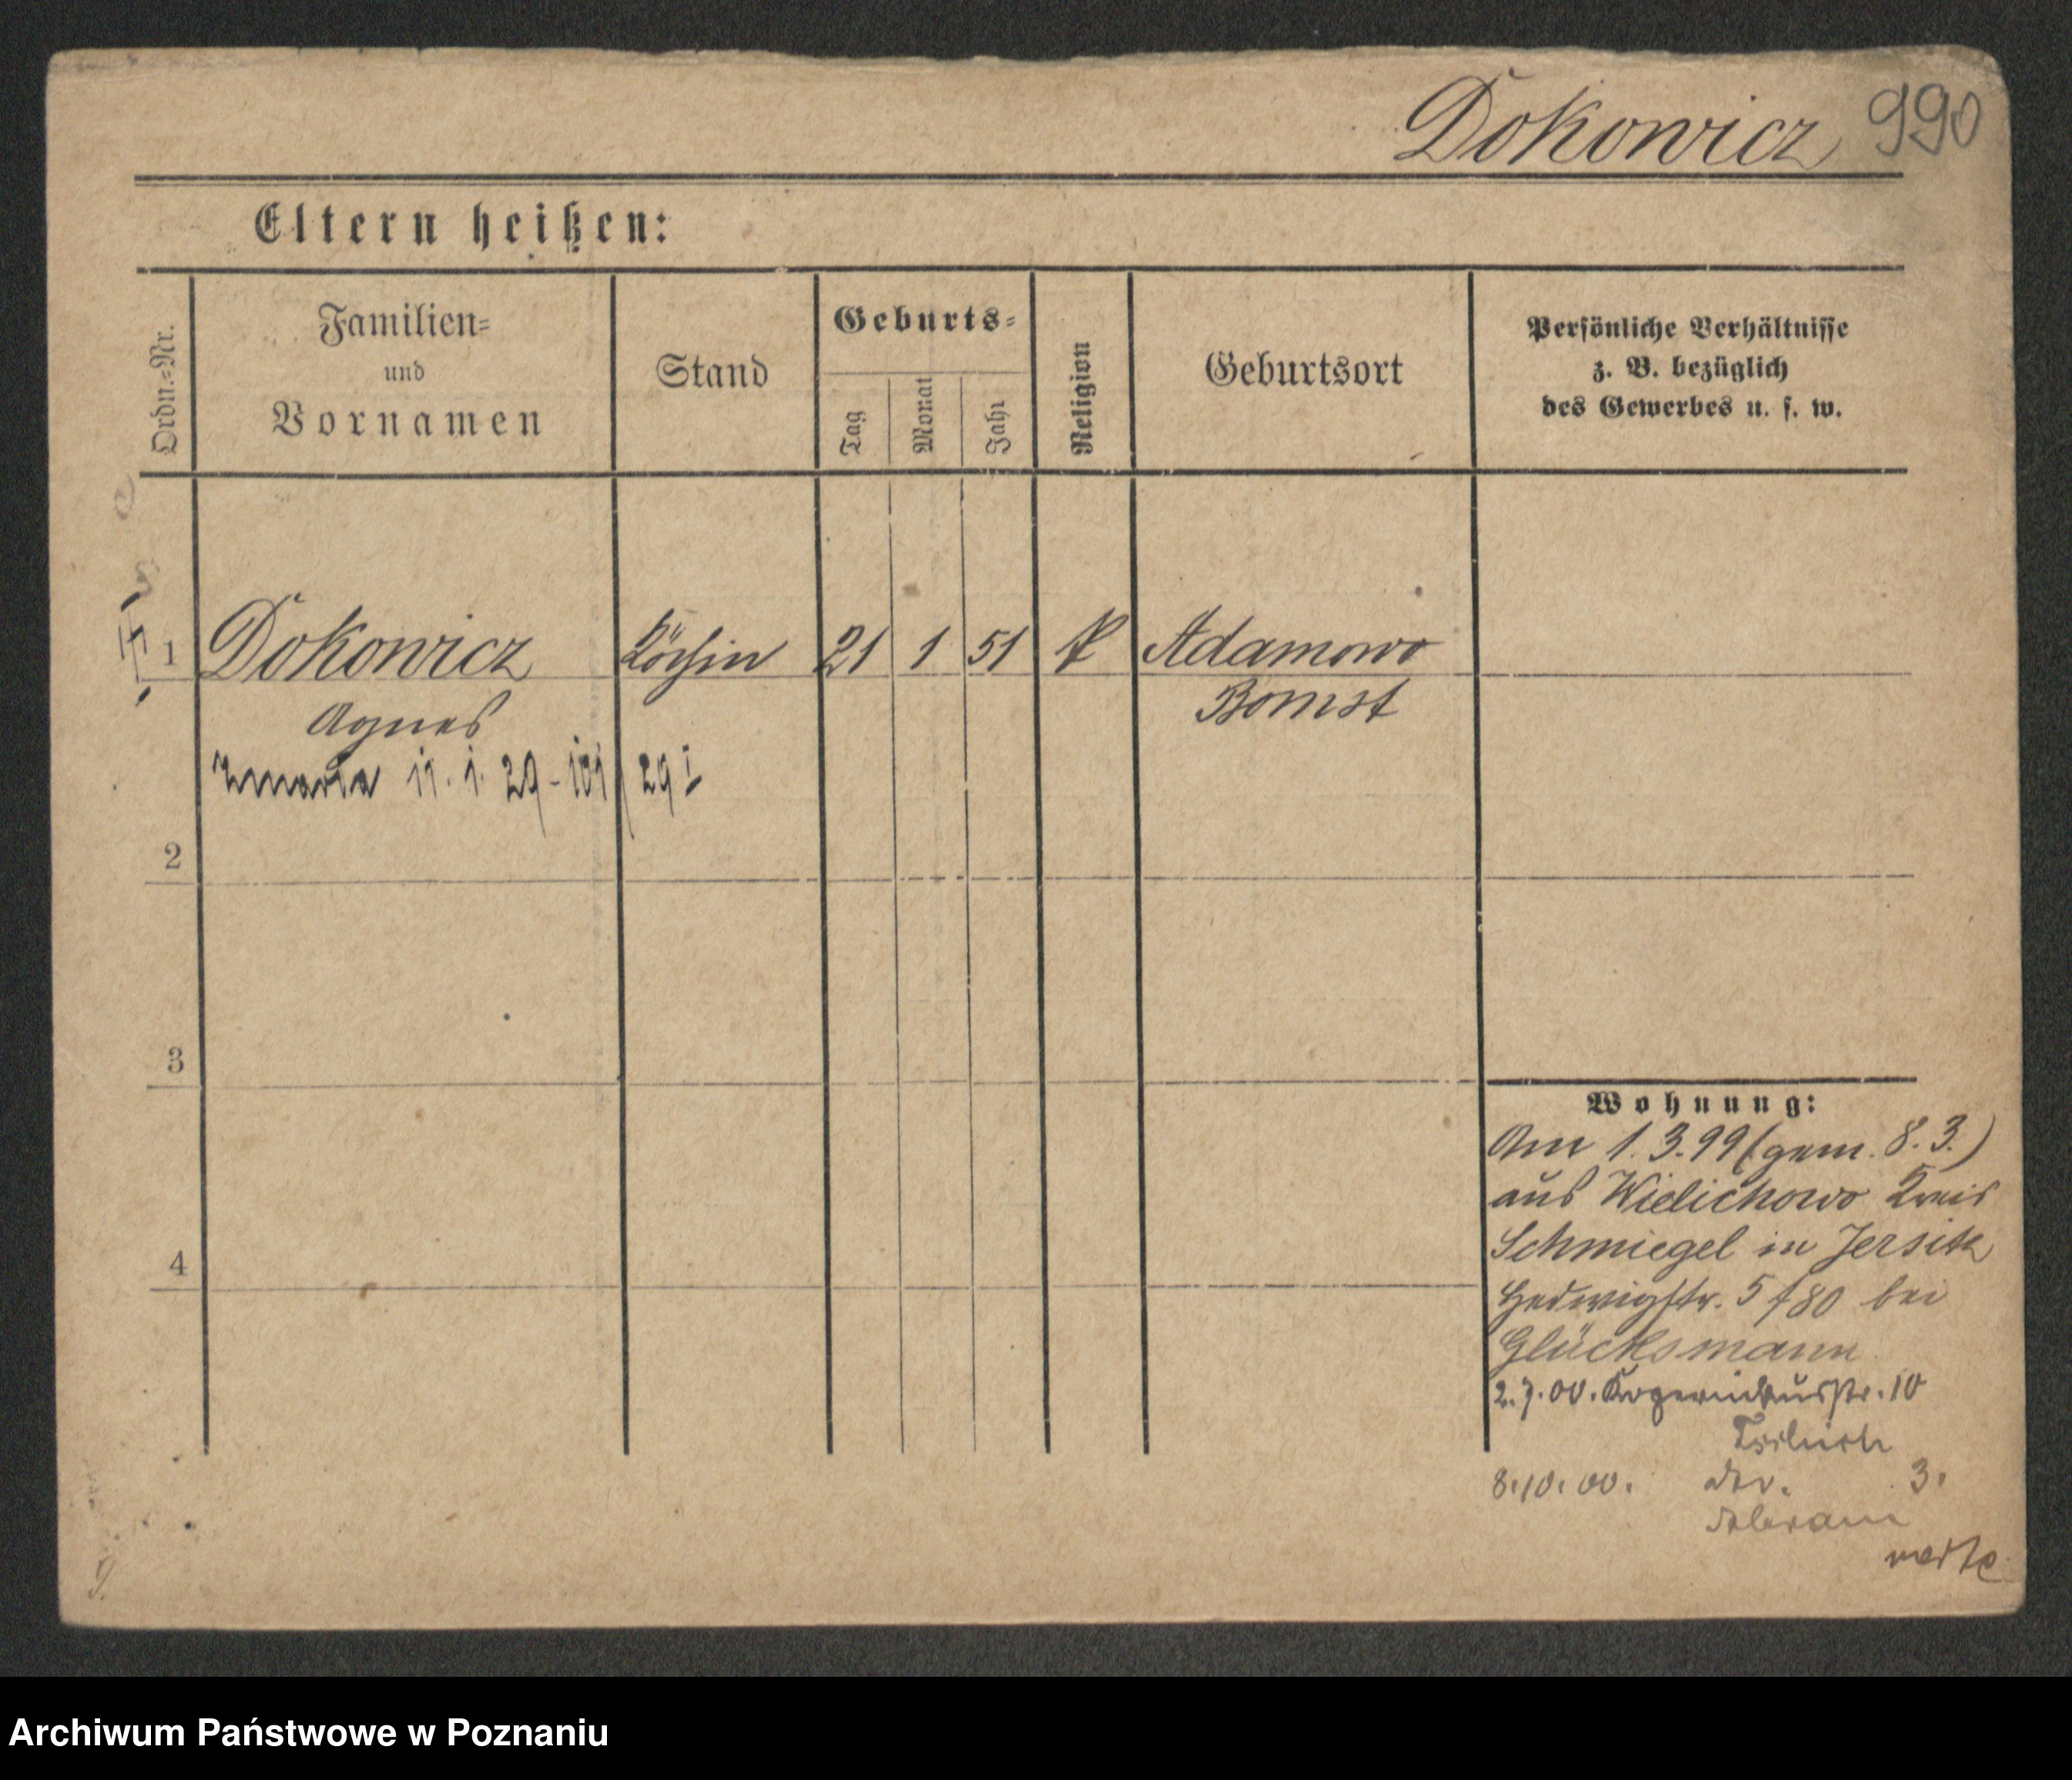 Dokowicz 990
Eltern heißen:
Ordn.=Nr.
Familien=
und
Vornamen
Stand
Geburts=
Tag
Monat
Jahr
Religion
Geburtsort
Persönliche Verhältnisse
z. B. bezüglich
des Gewerbes u. s. w.
1 Dokowicz Köchin 21 1 51 k Adamowo
Agnes Bomst
zmarła 11. 1. 29 - 101/29 I
2
3
4
Wohnung:
Am 1.3.99 (gem. 8.3.)
aus Wielichowo Kreis
Schmiegel in Jersitz
Hedwigstr. 5 f 80 bei
Glücksmann
2.7.00. Kopernikusstr. 10
8.10.00. do. 3.